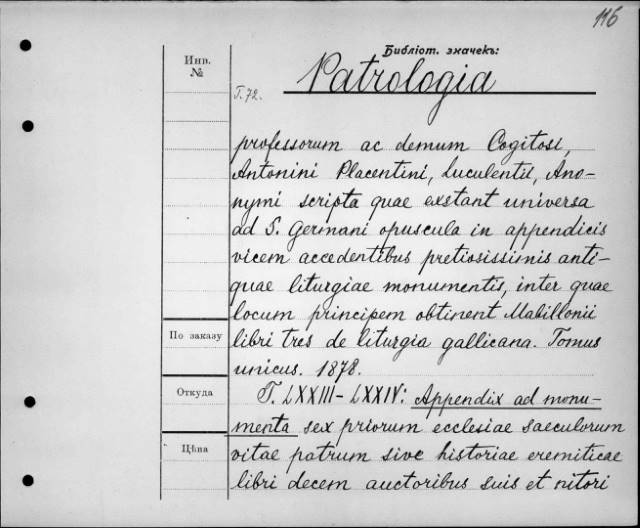 116
Библіот. значекъ:
Инв.
№
Patrologia
T. 72.
professorum ac demum Cogitosi,
Antonini Placentini, Luculentii, Ano-
nymi scripta quae exstant universa
ad S. Germani opuscula in appendicis
vicem accedentibus pretiosissimis anti-
quae liturgiae monumentis, inter quae
locum principem obtinent Mabillonii
По заказу
libri tres de liturgia gallicana. Tomus
unicus. 1878.
Откуда
T. LXXIII-LXXIV: Appendix ad monu-
menta sex priorum ecclesiae saeculorum
Цѣна
vitae patrum sive historiae eremiticae
libri decem auctoribus suis et nitori